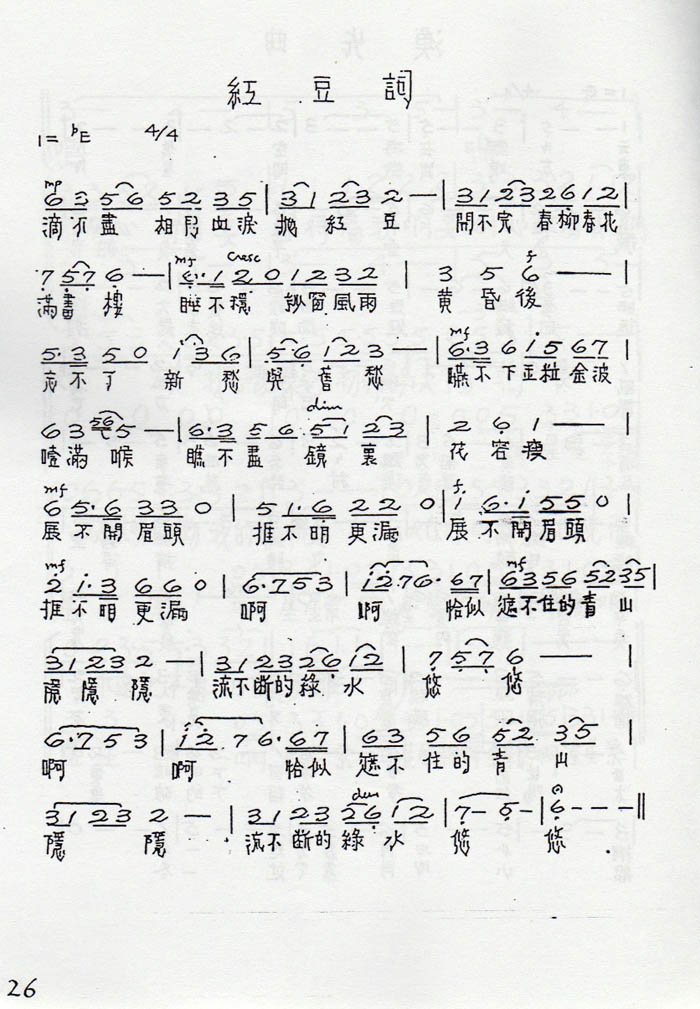 紅豆詞
1= ᵇE 4/4
mp
6 3 5 6 5 2 3 5 | 3 1 2 3 2 — | 3 1 2 3 2 6 1 2 |
滴不盡 相思血淚 拋紅豆 開不完 春柳春花
mf cresc f
7 5 7 6 — | 6·1 2 0 1 2 3 2 | 3 5 6 — — |
滿畫樓 睡不穩 紗窗風雨 黃昏後
5·3 5 0 i 3 6 | 5 6 i 2 3 — | 6·3 6 1 5 6 7 |
忘不了 新愁 與舊愁 嚥不下玉粒金波
mf
dim
6 3 5 6 5 — | 6·3 5 6 5 1 2 3 | 2 6 1 — — |
噎滿喉 瞧不盡 鏡裏 花容瘦
mf f
6 5·6 3 3 0 | 5 1·6 2 2 0 | i 6·i 5 5 0 |
展不開眉頭 捱不明更漏 展不開眉頭
mf mf
2 i·3 6 6 0 | 6·7 5 3 | i 2 7 6· 6 7 | 6 3 5 6 5 2 3 5 |
捱不明更漏 啊 啊 恰似 遮不住的青山
3 1 2 3 2 — | 3 1 2 3 2 6 1 2 | 7 5 7 6 — — |
隱隱隱 流不斷的綠水 悠悠
6·7 5 3 | i 2 7 6· 6 7 | 6 3 5 6 5 2 3 5 |
啊 啊 恰似 遮不住的青山
dim
3 1 2 3 2 — | 3 1 2 3 2 6 1 2 | 7 - 5 - | 6 - - - ‖
隱隱 流不斷的綠水 悠悠
26